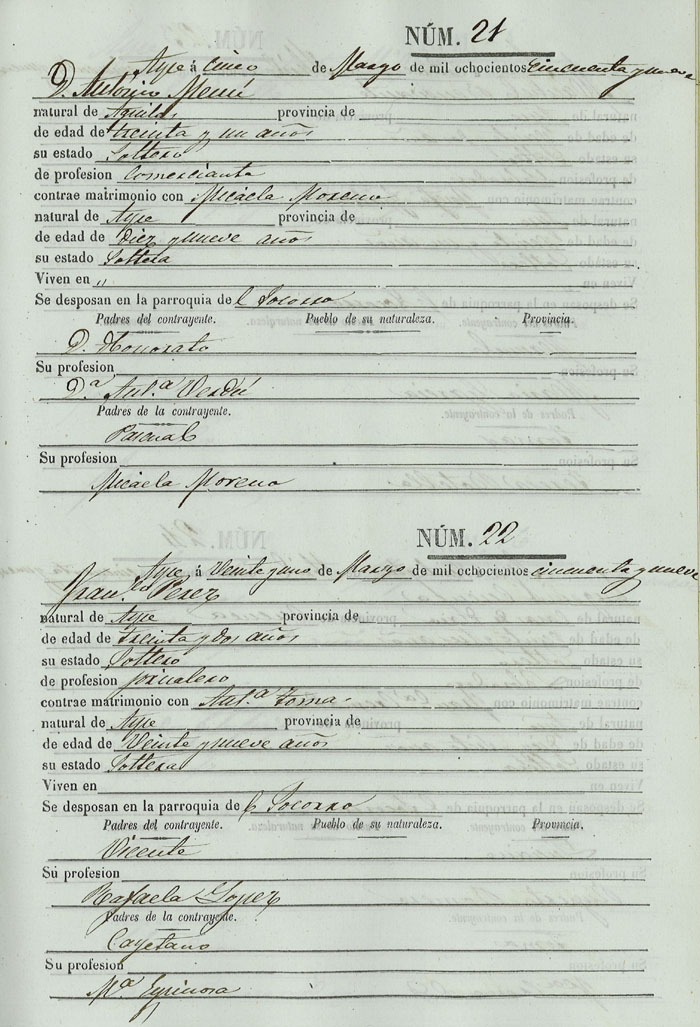 NÚM. 21
Aspe á Cinco de Marzo de mil ochocientos cincuenta y nueve
D. Antonio
natural de provincia de
de edad de treinta y un años
su estado Soltero
de profesion Comerciante
contrae matrimonio con Micaela Moreno
natural de Aspe provincia de
de edad de Diez y nueve años
su estado Soltera
Viven en "
Se desposan en la parroquia de l Socorro
Padres del contrayente. Pueblo de su naturaleza. Provincia.
D. Honorato
Su profesion
D.ª Ant.ª Verdú
Padres de la contrayente.
Pascual
Su profesion
Micaela Moreno
NÚM. 22
Aspe á Veinte y uno de Marzo de mil ochocientos cincuenta y nueve
Fran.co Perez
natural de Aspe provincia de
de edad de treinta y dos años
su estado Soltero
de profesion jornalero
contrae matrimonio con Ant.ª
natural de Aspe provincia de
de edad de Veinte y nueve años
su estado Soltera
Viven en
Se desposan en la parroquia de l Socorro
Padres del contrayente. Pueblo de su naturaleza. Provincia.
Vicente
Su profesion
Rafaela Lopez
Padres de la contrayente.
Cayetano
Su profesion
M.ª Espinosa